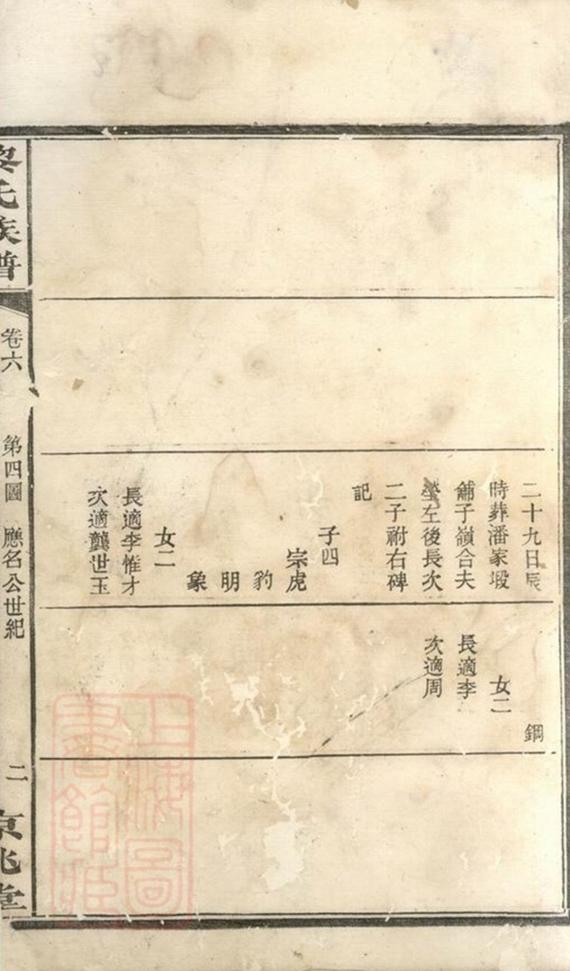 二十九日辰
時葬潘家塅
舖子嶺合夫
塋左後長次
二子祔右碑
記
子四
宗虎
豹
明
象
女二
長適李惟才
次適龔世玉
鋼
女二
長適李
次適周
氏族譜
卷六
第四圖 應名公世紀
二
京兆堂